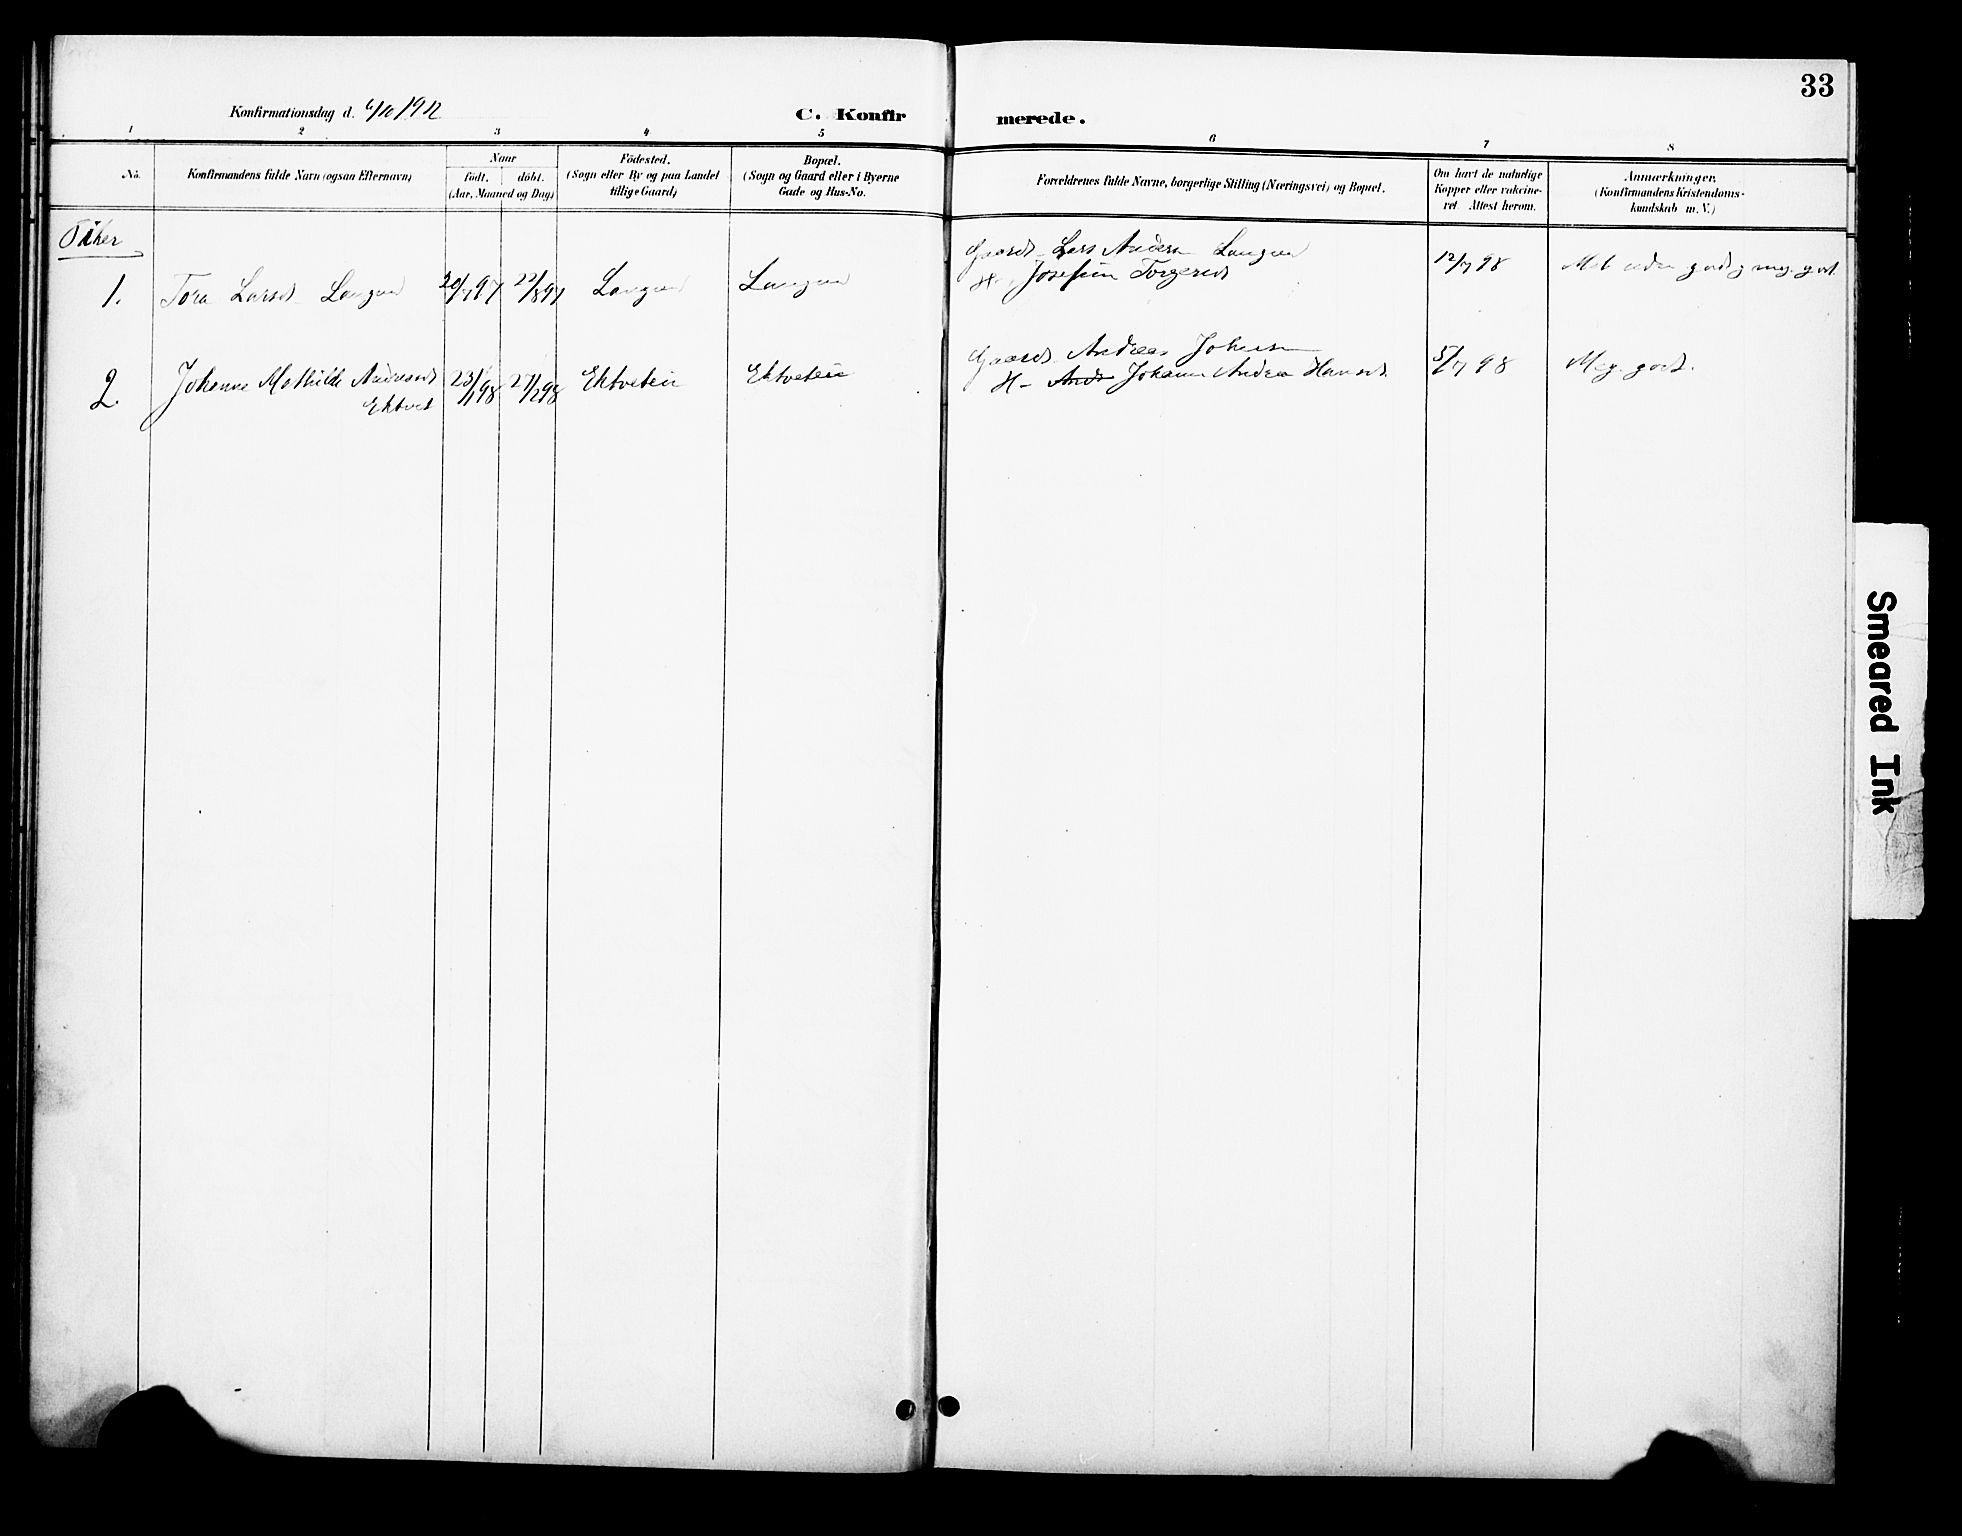 33
Konfirmationsdag d. 6/10 1912
C. Konfirmerede.
1 2 3 4 5 6 7 8
No.
Konfirmandens fulde Navn (ogsaa Efternavn)
Naar
født. døbt.
(Aar, Maaned og Dag)
Fødested.
(Sogn eller By og paa Landet
tillige Gaard)
Bopæl.
(Sogn og Gaard eller i Byerne
Gade og Hus-No.
Forældrenes fulde Navne, borgerlige Stilling (Næringsvei) og Bopæl.
Om havt de naturlige
Kopper eller vakcine-
ret. Attest herom.
Anmærkninger.
(Konfirmandens Kristendoms-
kundskab m. V.)
Piker
Gaardb. Lars Andersen Langen
1. Tora Larsd. Langen 20/7 97 22/8 97 Langen Langen H. Josefine Torgersd. 12/7 98 meg. godt
Gaardb. Andreas Johansen
2. Johanne Mathilde Andreasd. 23/1 98 27/2 98 Ektvetein Ektvetein H. Andr Johanne Andrea Hansd. 5/7 98 Meg. godt.
Ektvet
Smeared Ink